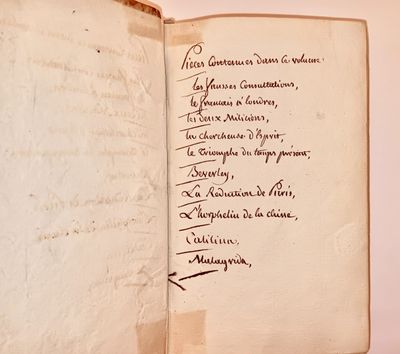 Pieces Contenues dans ce volume:
les fausses Consultations,
le français à Londres,
les deux Miliciens,
la chercheuse d'Esprit,
le Triomphe du temps présent,
Beverley,
La Réduction de Paris,
L'horphelin de la chine,
Catilina,
Malagrida,